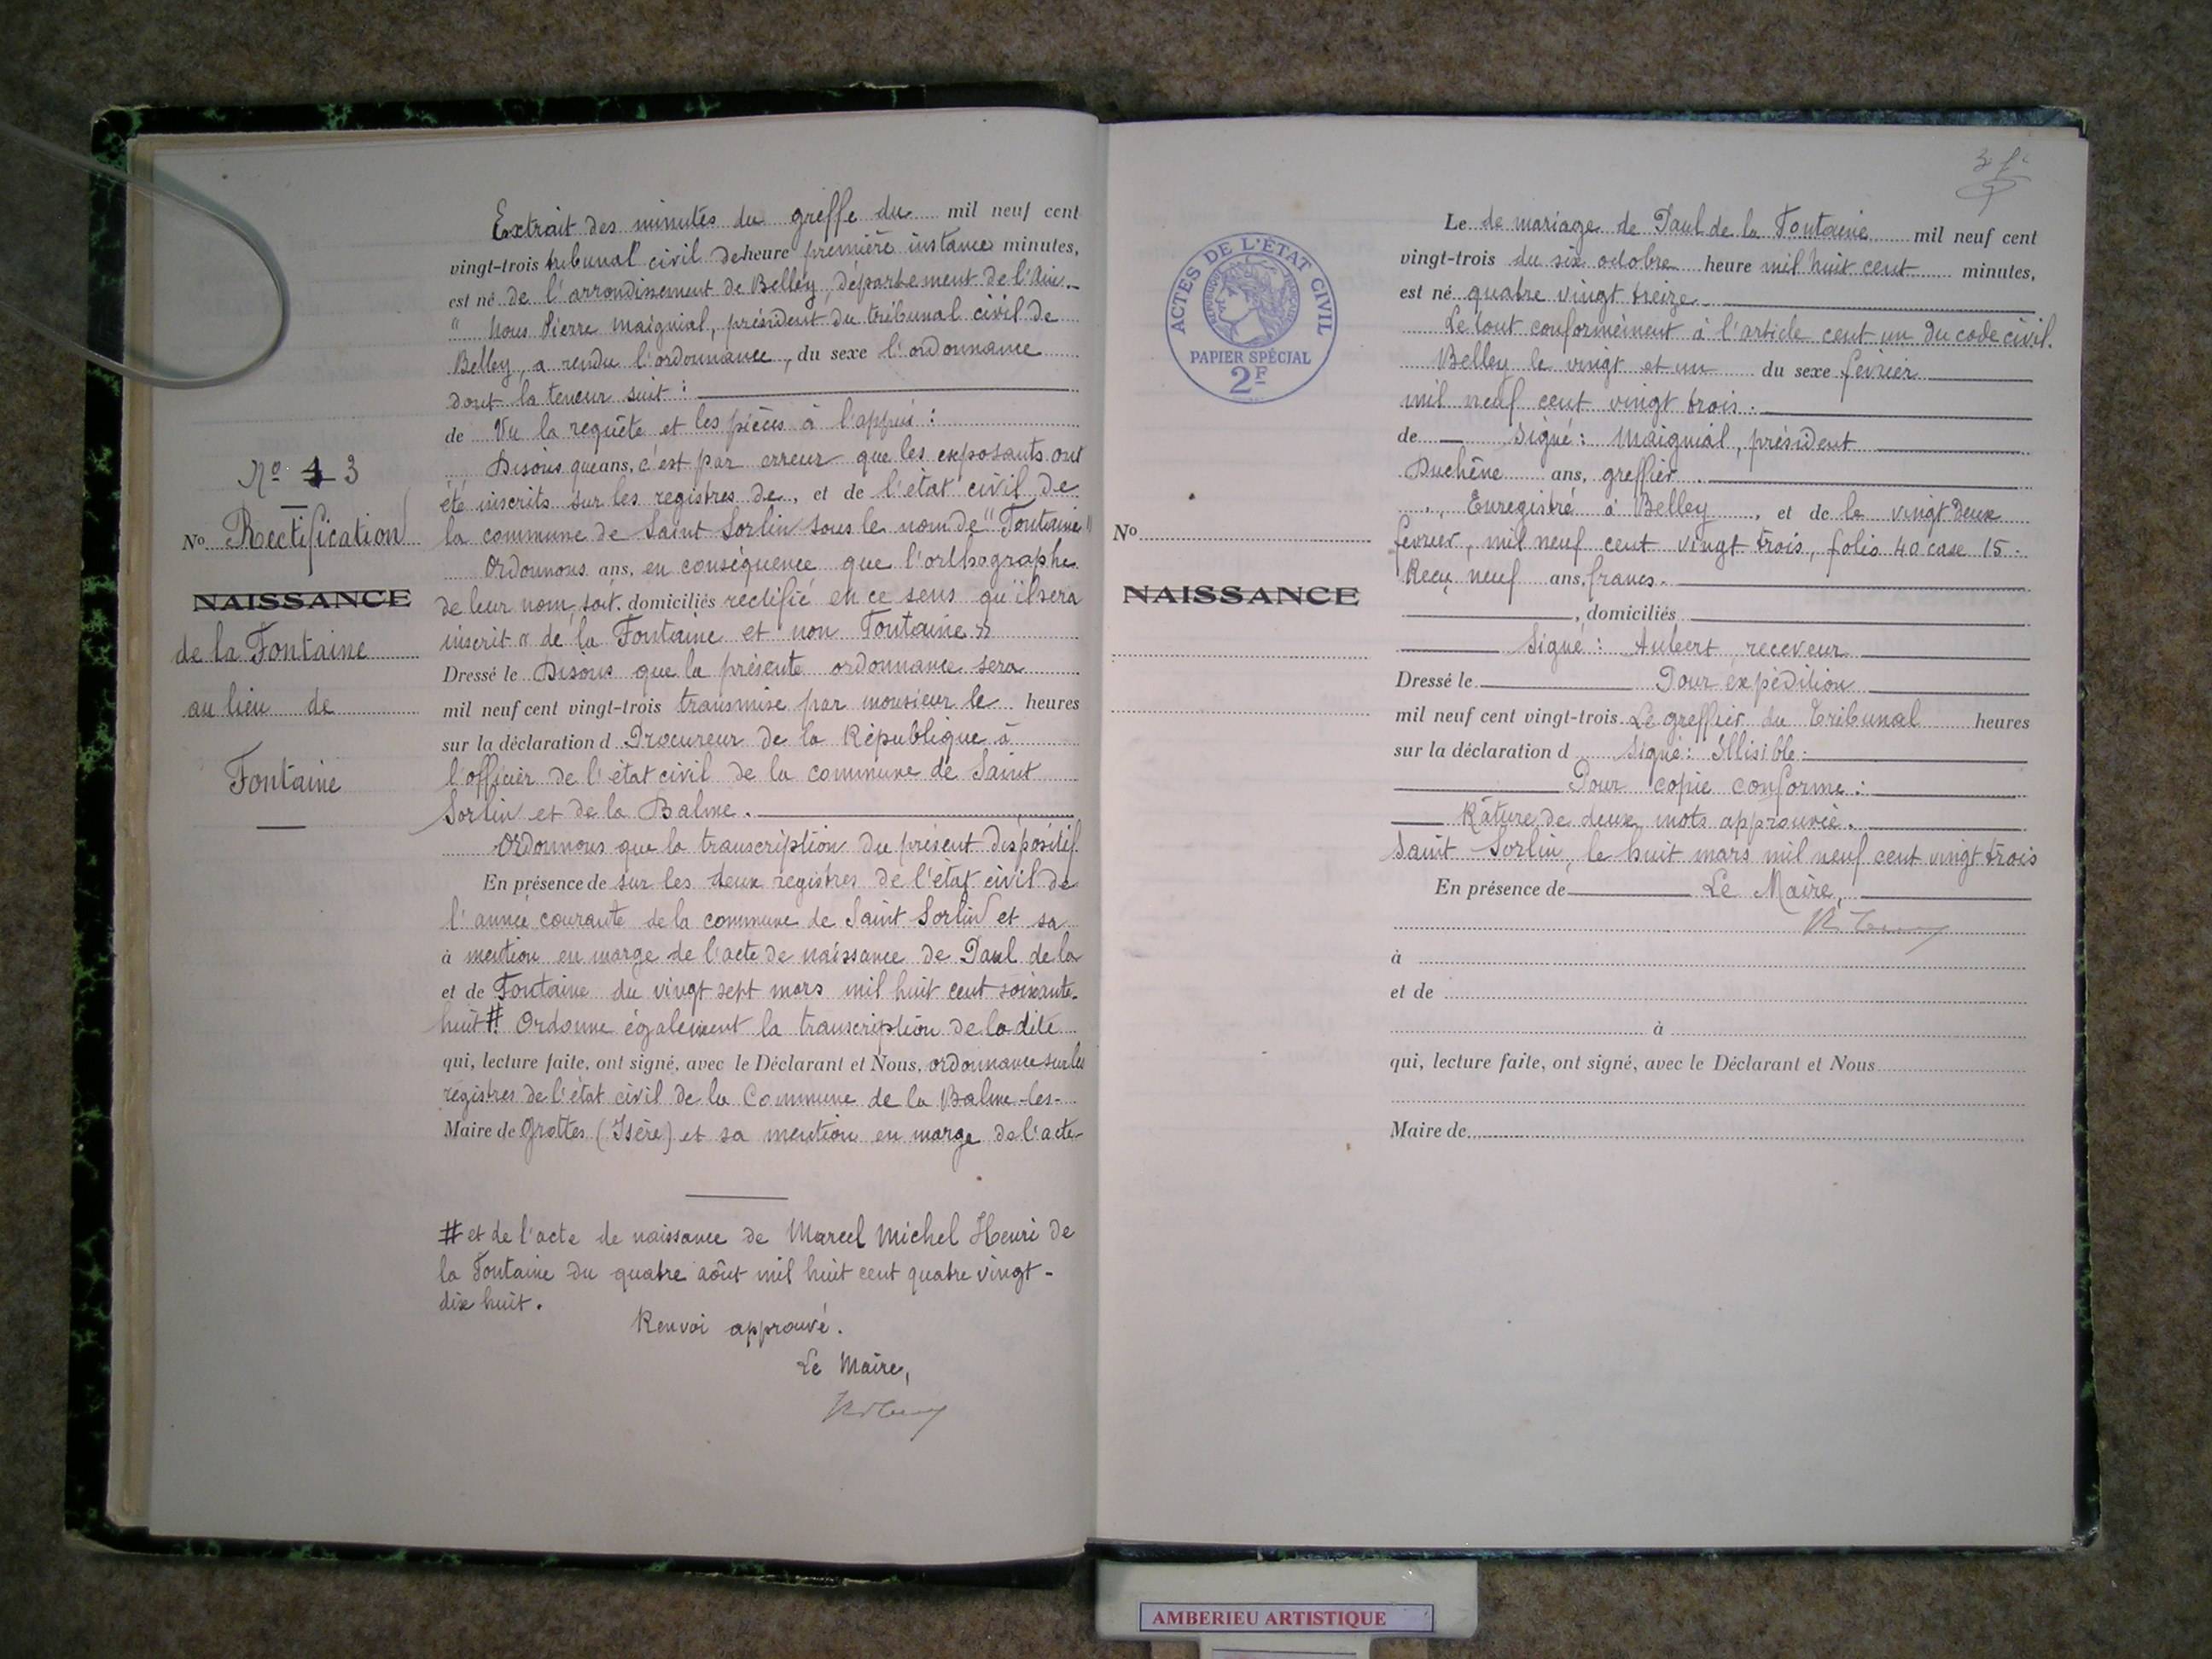 Nº 1 3
Nº Rectification
NAISSANCE
de la Fontaine
au lieu de
Fontaine
Extrait des minutes du greffe du mil neuf cent
vingt-trois tribunal civil de heure première instance minutes,
est né de l'arrondissement de Belley, département de l'Ain.
" Nous Pierre Maignial, président du tribunal civil de
Belley, a rendu l'ordonnance, du sexe l'ordonnance
dont la teneur suit :
de Vu la requête et les pièces à l'appui :
Disons que ans, c'est par erreur que les exposants ont
été inscrits sur les registres de, et de l'état civil de
la commune de Saint Sorlin sous le nom de "Fontaine"
Ordonnons ans, en conséquence que l'orthographe
de leur nom, soit, domiciliés rectifié en ce sens qu'il sera
inscrit « de la Fontaine et non Fontaine »
Dressé le Disons que la présente ordonnance sera
mil neuf cent vingt-trois transmise par monsieur le heures
sur la déclaration d Procureur de la République à
l'officier de l'état civil de la commune de Saint
Sorlin et de la Balme.
Ordonnons que la transcription du présent dispositif
En présence de sur les deux registres de l'état civil de
l'année courante de la commune de Saint Sorlin et sa
à mention en marge de l'acte de naissance de Paul de la
et de Fontaine du vingt sept mars mil huit cent soixante-
huit #. Ordonne également la transcription de la dite
qui, lecture faite, ont signé, avec le Déclarant et Nous, ordonnance sur les
registres de l'état civil de la Commune de la Balme-les-
Maire de Grottes (Isère) et sa mention en marge de l'acte
# et de l'acte de naissance de Marcel Michel Henri de
la Fontaine du quatre août mil huit cent quatre vingt-
dix huit.
Renvoi approuvé.
Le Maire,
ACTES DE L'ÉTAT CIVIL
RÉPUBLIQUE FRANÇAISE
PAPIER SPÉCIAL
2F
Nº
NAISSANCE
Le de mariage de Paul de la Fontaine mil neuf cent
vingt-trois du six octobre heure mil huit cent minutes,
est né quatre vingt treize.
Le tout conformément à l'article cent un du code civil.
Belley le vingt et un du sexe février
mil neuf cent vingt trois.
de Signé : Maignial, président
Duchêne ans, greffier.
, Enregistré à Belley, et de le vingt deux
février, mil neuf cent vingt trois, folio 40 case 15.
Reçu neuf ans, francs.
, domiciliés
Signé : Aubert, receveur
Dressé le Pour expédition
mil neuf cent vingt-trois Le greffier du Tribunal heures
sur la déclaration d Signé : Illisible.
Pour copie conforme :
Râture de deux mots approuvée.
Saint Sorlin, le huit mars mil neuf cent vingt trois
En présence de Le Maire,
à
et de
à
qui, lecture faite, ont signé, avec le Déclarant et Nous
Maire de
AMBERIEU ARTISTIQUE